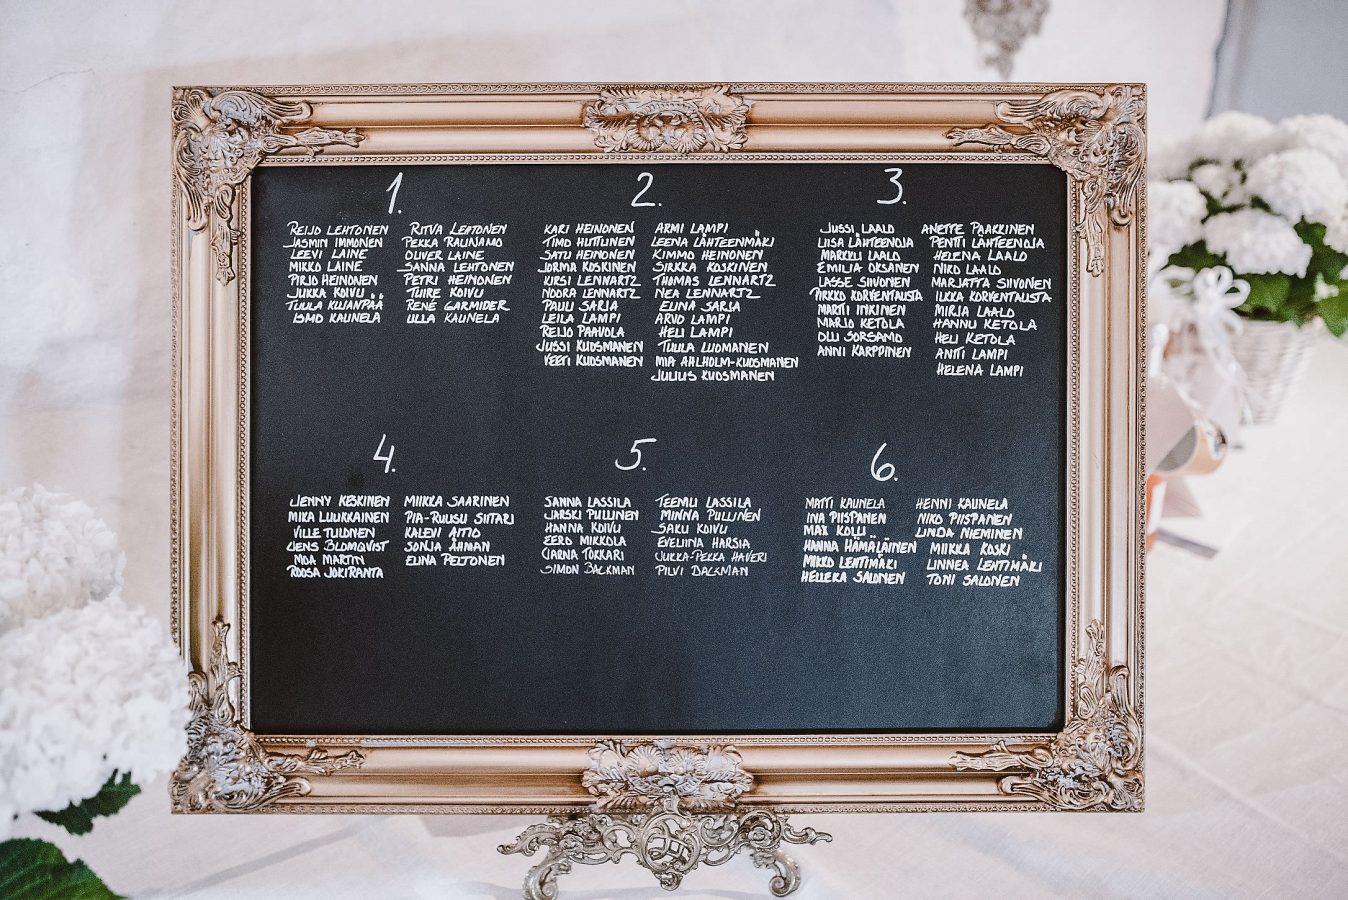 1.
REIJO LEHTONEN
JASMIN IMMONEN
LEEVI LAINE
MIKKO LAINE
PIRJO HEINONEN
JUKKA KOIVU
TUULA KUJANPÄÄ
ISMO KAUNELA
RITVA LEHTONEN
PEKKA RAUNAMO
OLIVER LAINE
SANNA LEHTONEN
PETRI HEINONEN
TUIRE KOIVU
RENÉ GARMIDER
ULLA KAUNELA
2.
KARI HEINONEN
TIMO HUTTUNEN
SATU HEINONEN
JORMA KOSKINEN
KIRSI LENNARTZ
NOORA LENNARTZ
PAULI SARJA
LEILA LAMPI
REIJO PAAVOLA
JUSSI KUOSMANEN
VEETI KUOSMANEN
ARMI LAMPI
LEENA LÄHTEENMÄKI
KIMMO HEINONEN
SIRKKA KOSKINEN
THOMAS LENNARTZ
NEA LENNARTZ
ELINA SARJA
ARVO LAMPI
HELI LAMPI
TUULA LUOMANEN
MIA AHLHOLM-KUOSMANEN
JULIUS KUOSMANEN
3.
JUSSI LAALO
LIISA LÄHTEENOJA
MARKKU LAALO
EMILIA OKSANEN
LASSE SIIVONEN
PIRKKO KORVENTAUSTA
MARTTI INKINEN
MARJO KETOLA
OLLI SORSAMO
ANNI KARPPINEN
ANETTE PAAKKINEN
PENTTI LÄHTEENOJA
HELENA LAALO
NIKO LAALO
MARJATTA SIIVONEN
ILKKA KORVENTAUSTA
MIRJA LAALO
HANNU KETOLA
HELI KETOLA
ANTTI LAMPI
HELENA LAMPI
4.
JENNY KESKINEN
MIKA LUUKKAINEN
VILLE TULONEN
JENS BLOMQVIST
MOA MARTIN
ROOSA JOKIRANTA
MIIKKA SAARINEN
PIA-RUUSU SIITARI
KALEVI AITIO
SONJA ÅHMAN
ELINA PELTONEN
5.
SANNA LASSILA
JARSKI PULLINEN
HANNA KOIVU
EERO MIKKOLA
JARNA TOKKARI
SIMON BACKMAN
TEEMU LASSILA
MINNA PULLINEN
SAKU KOIVU
EVELIINA HARSIA
JUKKA-PEKKA HAVERI
PILVI BACKMAN
6.
MATTI KAUNELA
INA PIISPANEN
MAX KOLU
HANNA HÄMÄLÄINEN
MIKKO LEHTIMÄKI
HELLEKA SALONEN
HENNI KAUNELA
NIKO PIISPANEN
LINDA NIEMINEN
MIIKKA KOSKI
LINNEA LEHTIMÄKI
TONI SALONEN